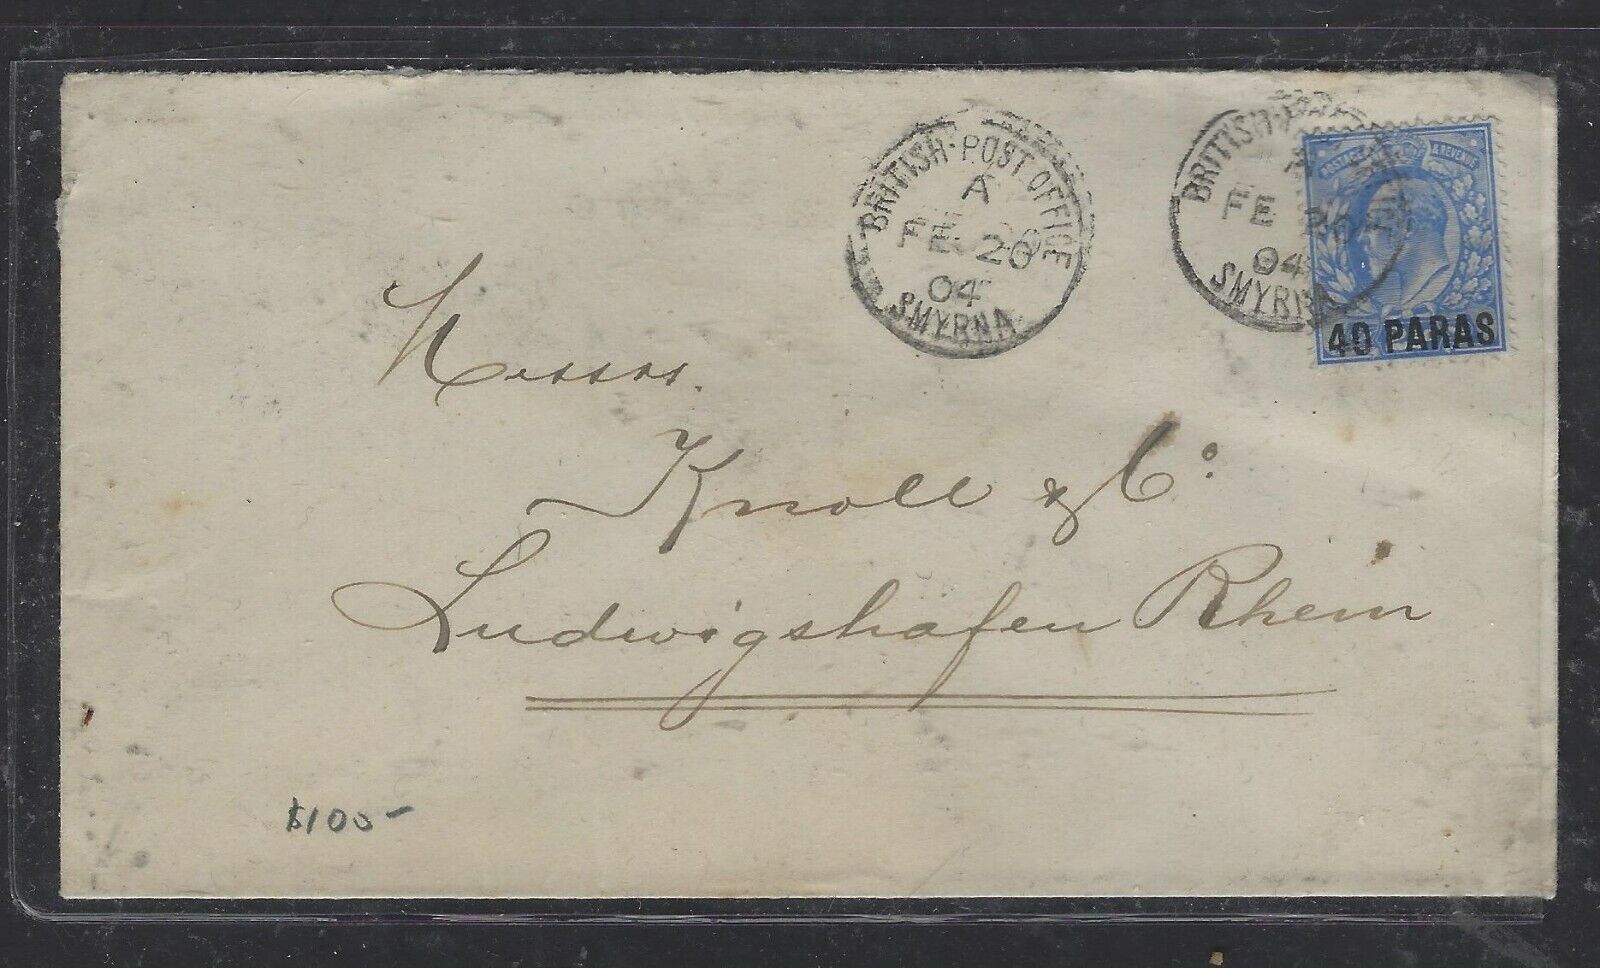 BRITISH·POST OFFICE
A
FE 20
04
SMYRNA
BRITISH·
FE
04
SMYRNA
POSTAGE & REVENUE
40 PARAS
Messrs.
Knoll & Co.
Ludwigshafen Rhein
$100-